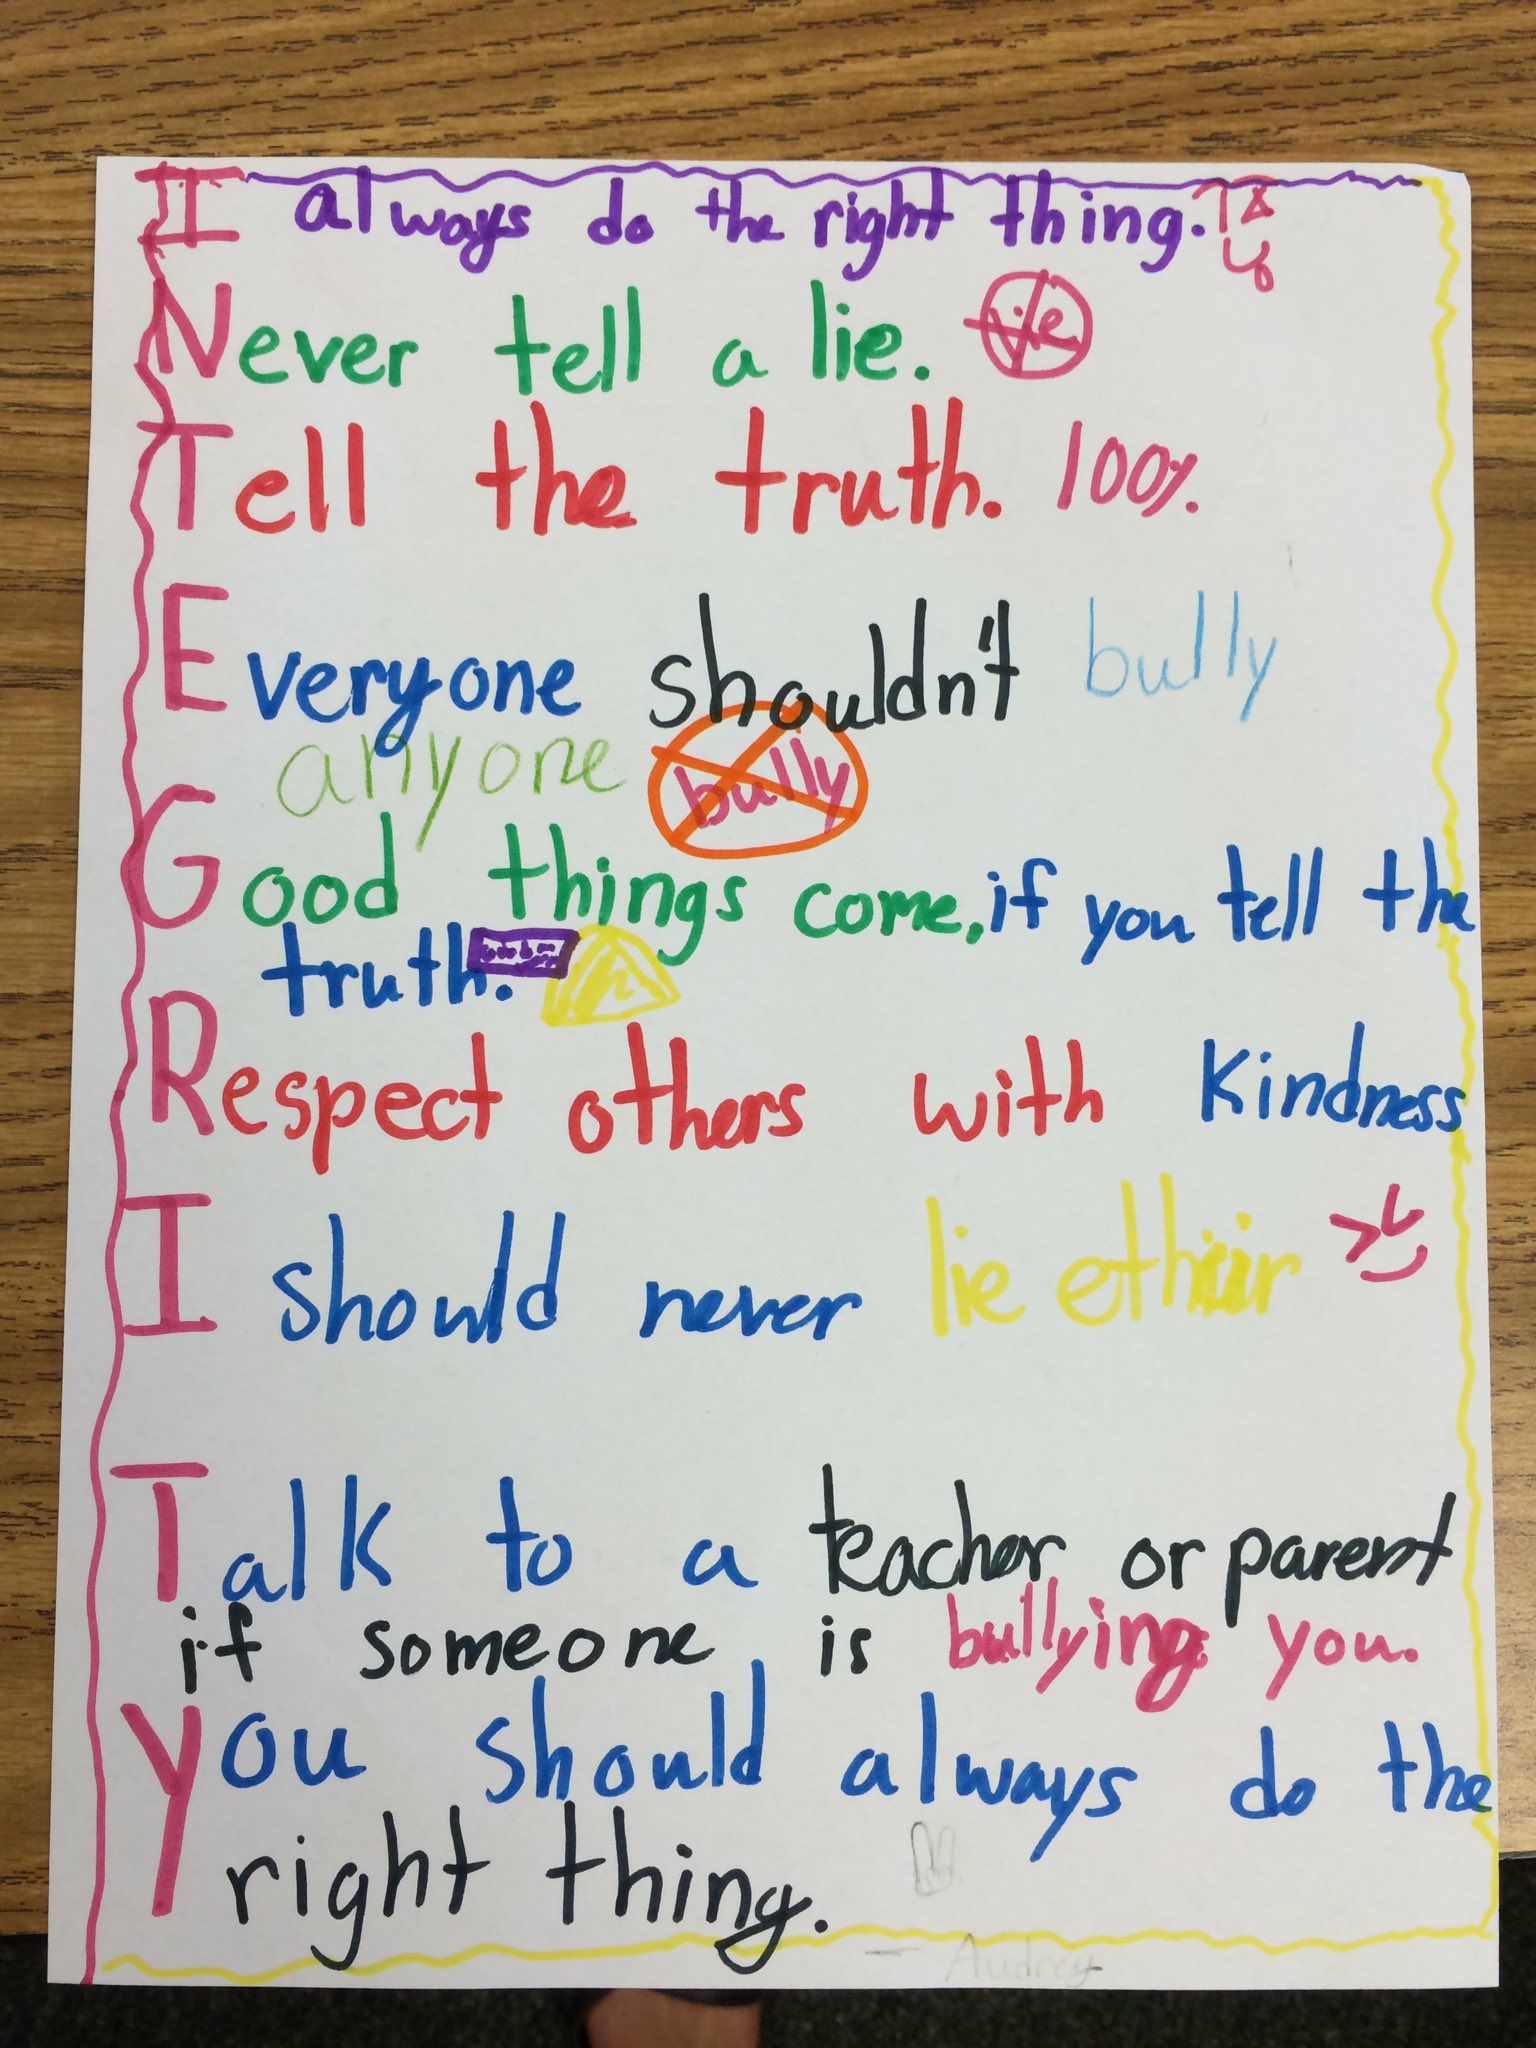 I always do the right thing.
Never tell a lie. lie
Tell the truth. 100%.
Everyone shouldn't bully
anyone bully
Good things come, if you tell the
truth.
Respect others with kindness
I should never lie ethier
Talk to a teacher or parent
if someone is bullying you.
You should always do the
right thing.
- Audrey